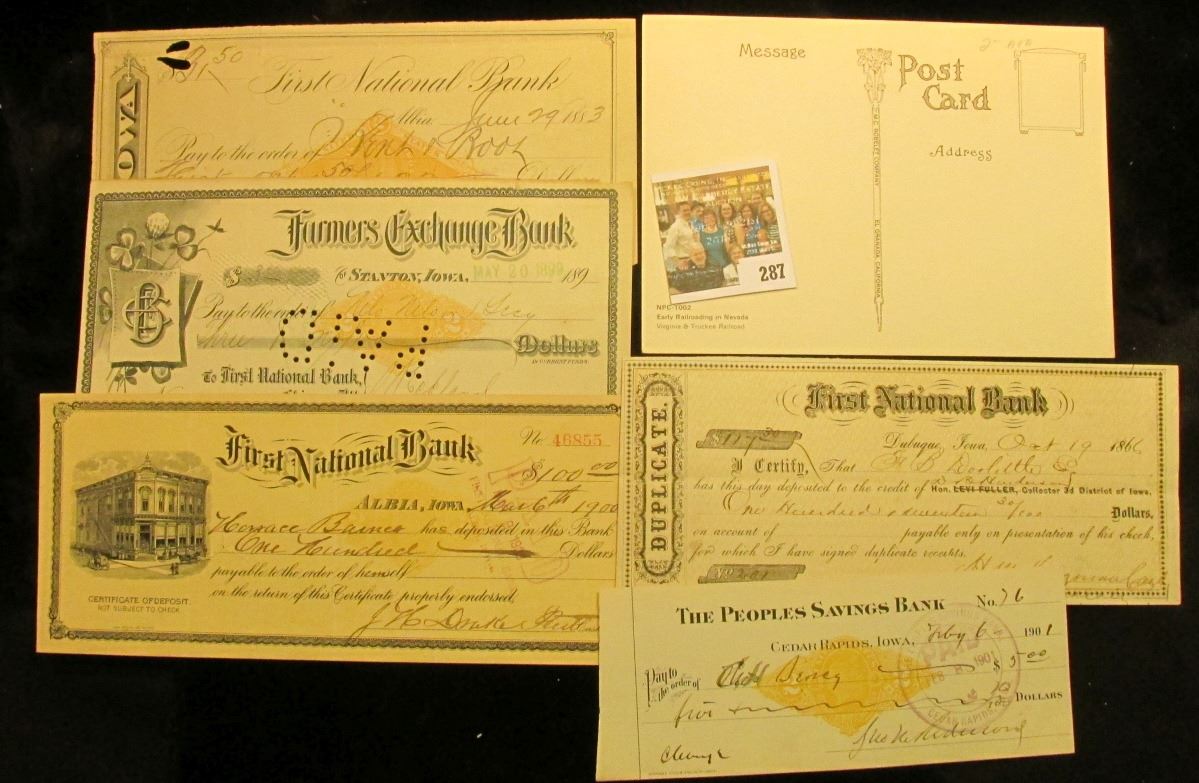 50
First National Bank
IOWA
Albia, June 29 1883
Pay to the order of
50
Farmers Exchange Bank
$
To STANTON, IOWA, MAY 20 1899 189
Pay to the order of
2
PAID
Dollars
IN CURRENT FUNDS
To First National Bank,
First National Bank
No. 46855
$100 00
ALBIA, IOWA Mar 6th 1900
Horrace Barnes has deposited in this Bank
One Hundred Dollars
payable to the order of himself
on the return of this Certificate properly endorsed.
CERTIFICATE OF DEPOSIT.
NOT SUBJECT TO CHECK.
J H Drake
Message
Post
Card
Address
EL GRANADA, CALIFORNIA
287
NPC-T002
Early Railroading in Nevada
Virginia & Truckee Railroad
DUPLICATE.
First National Bank
$117 30
Dubuque, Iowa, Oct 19 1866
I Certify, That F B Doolittle
has this day deposited to the credit of Hon. LEVI FULLER, Collector 3d District of Iowa,
One Hundred & seventeen 30/100 Dollars,
on account of payable only on presentation of his check,
for which I have signed duplicate receipts.
THE PEOPLES SAVINGS BANK No. 76
CEDAR RAPIDS, IOWA, Feby 6 1901
Pay to
the order of $ 5.00
PAID
FEB 8 1901
CEDAR RAPIDS
2
five DOLLARS